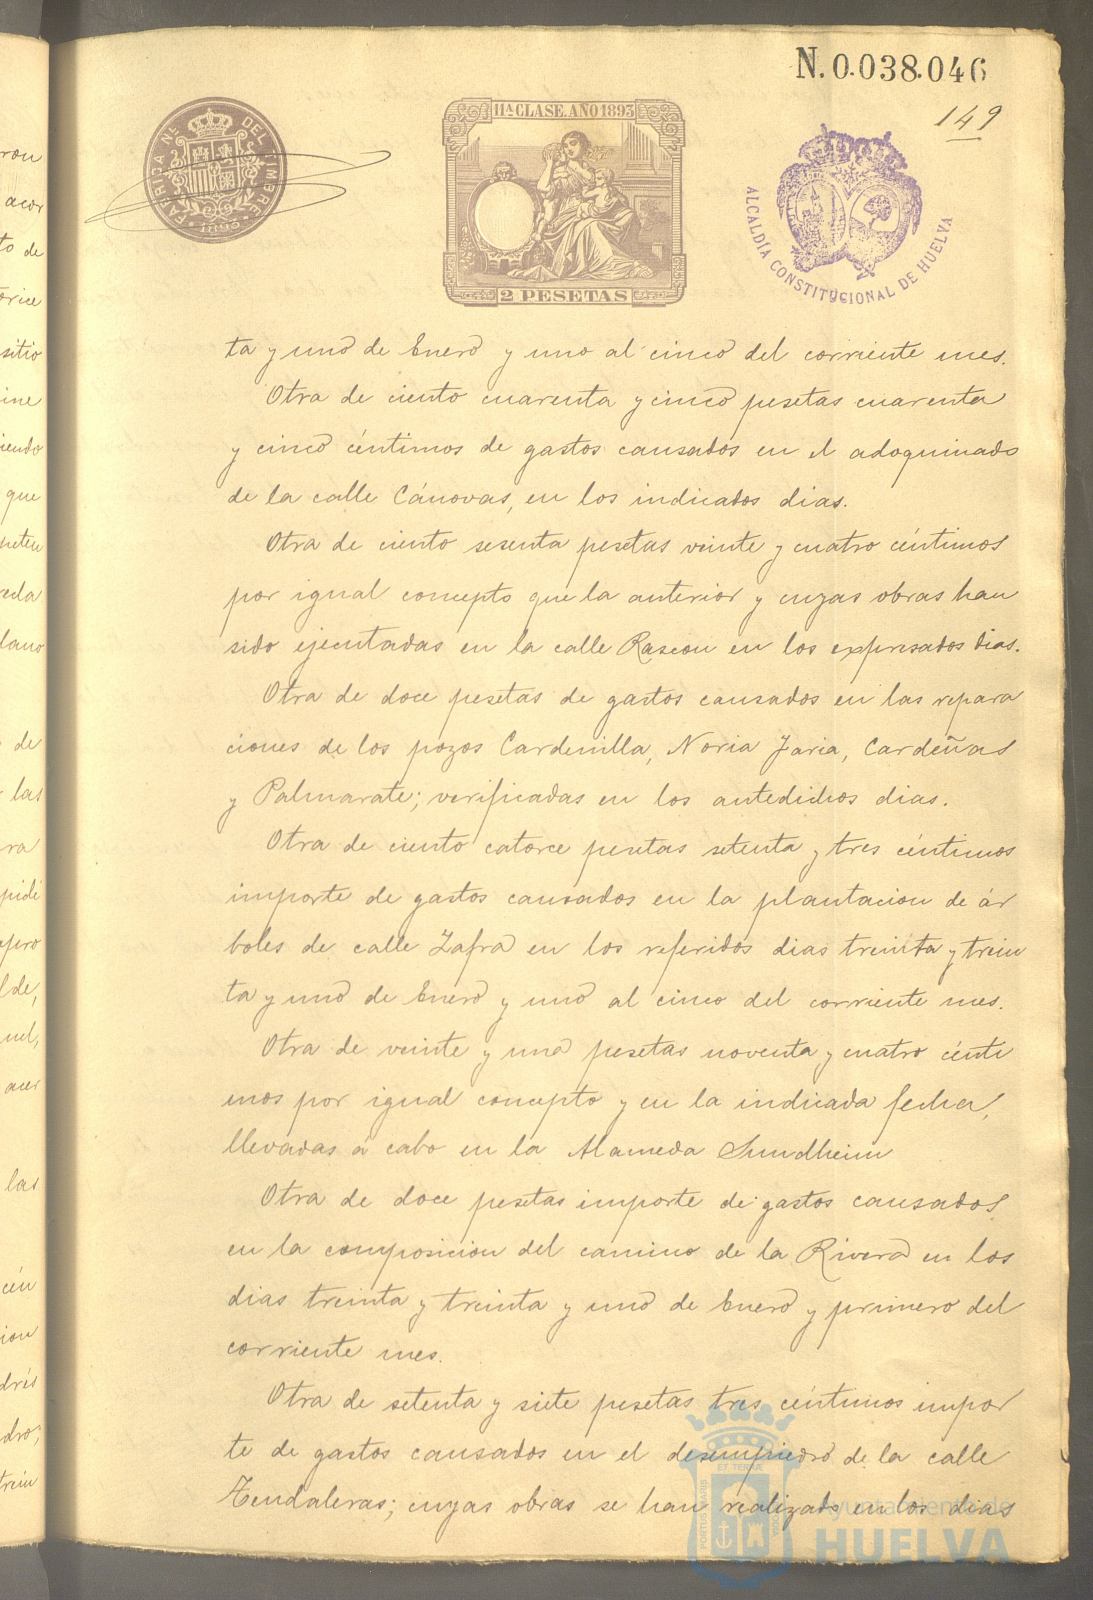 N. 0.038.046
149
FÁBRICA NL. DEL TIMBRE
1893
11ª CLASE. AÑO 1893
2 PESETAS
ALCALDÍA CONSTITUCIONAL DE HUELVA
ta y uno de Enero y uno al cinco del corriente mes.
Otra de ciento cuarenta y cinco pesetas cuarenta
y cinco céntimos de gastos causados en el adoquinado
de la calle Cánovas, en los indicados dias.
Otra de ciento sesenta pesetas veinte y cuatro céntimos
por igual concepto que la anterior y cuyas obras han
sido ejecutadas en la calle Rascon en los expresados dias.
Otra de doce pesetas de gastos causados en las repara
ciones de los pozos Cardenilla, Noria Jaria, Cardeñas
y Palmarate; verificadas en los antedichos dias.
Otra de ciento catorce pesetas setenta y tres céntimos
importe de gastos causados en la plantacion de ár
boles de calle Zafra en los referidos dias treinta y trein
ta y uno de Enero y uno al cinco del corriente mes.
Otra de veinte y una pesetas noventa y cuatro cénti
mos por igual concepto y en la indicada fecha,
llevadas á cabo en la Alameda Sundheim
Otra de doce pesetas importe de gastos causados
en la composicion del camino de la Rivera en los
dias treinta y treinta y uno de Enero y primero del
corriente mes.
Otra de setenta y siete pesetas tres céntimos impor
te de gastos causados en el desempiedro de la calle
Tendaleras; cuyas obras se han realizado en los dias
ron
acor
to de
orice
sitio
ine
iendo
que
de
las
ra
pidi
apro
lde,
las
cén
ion
drés
dro;
trein
PORTUS MARIS ET TERRAE CUSTODIA
Ayuntamiento de
HUELVA